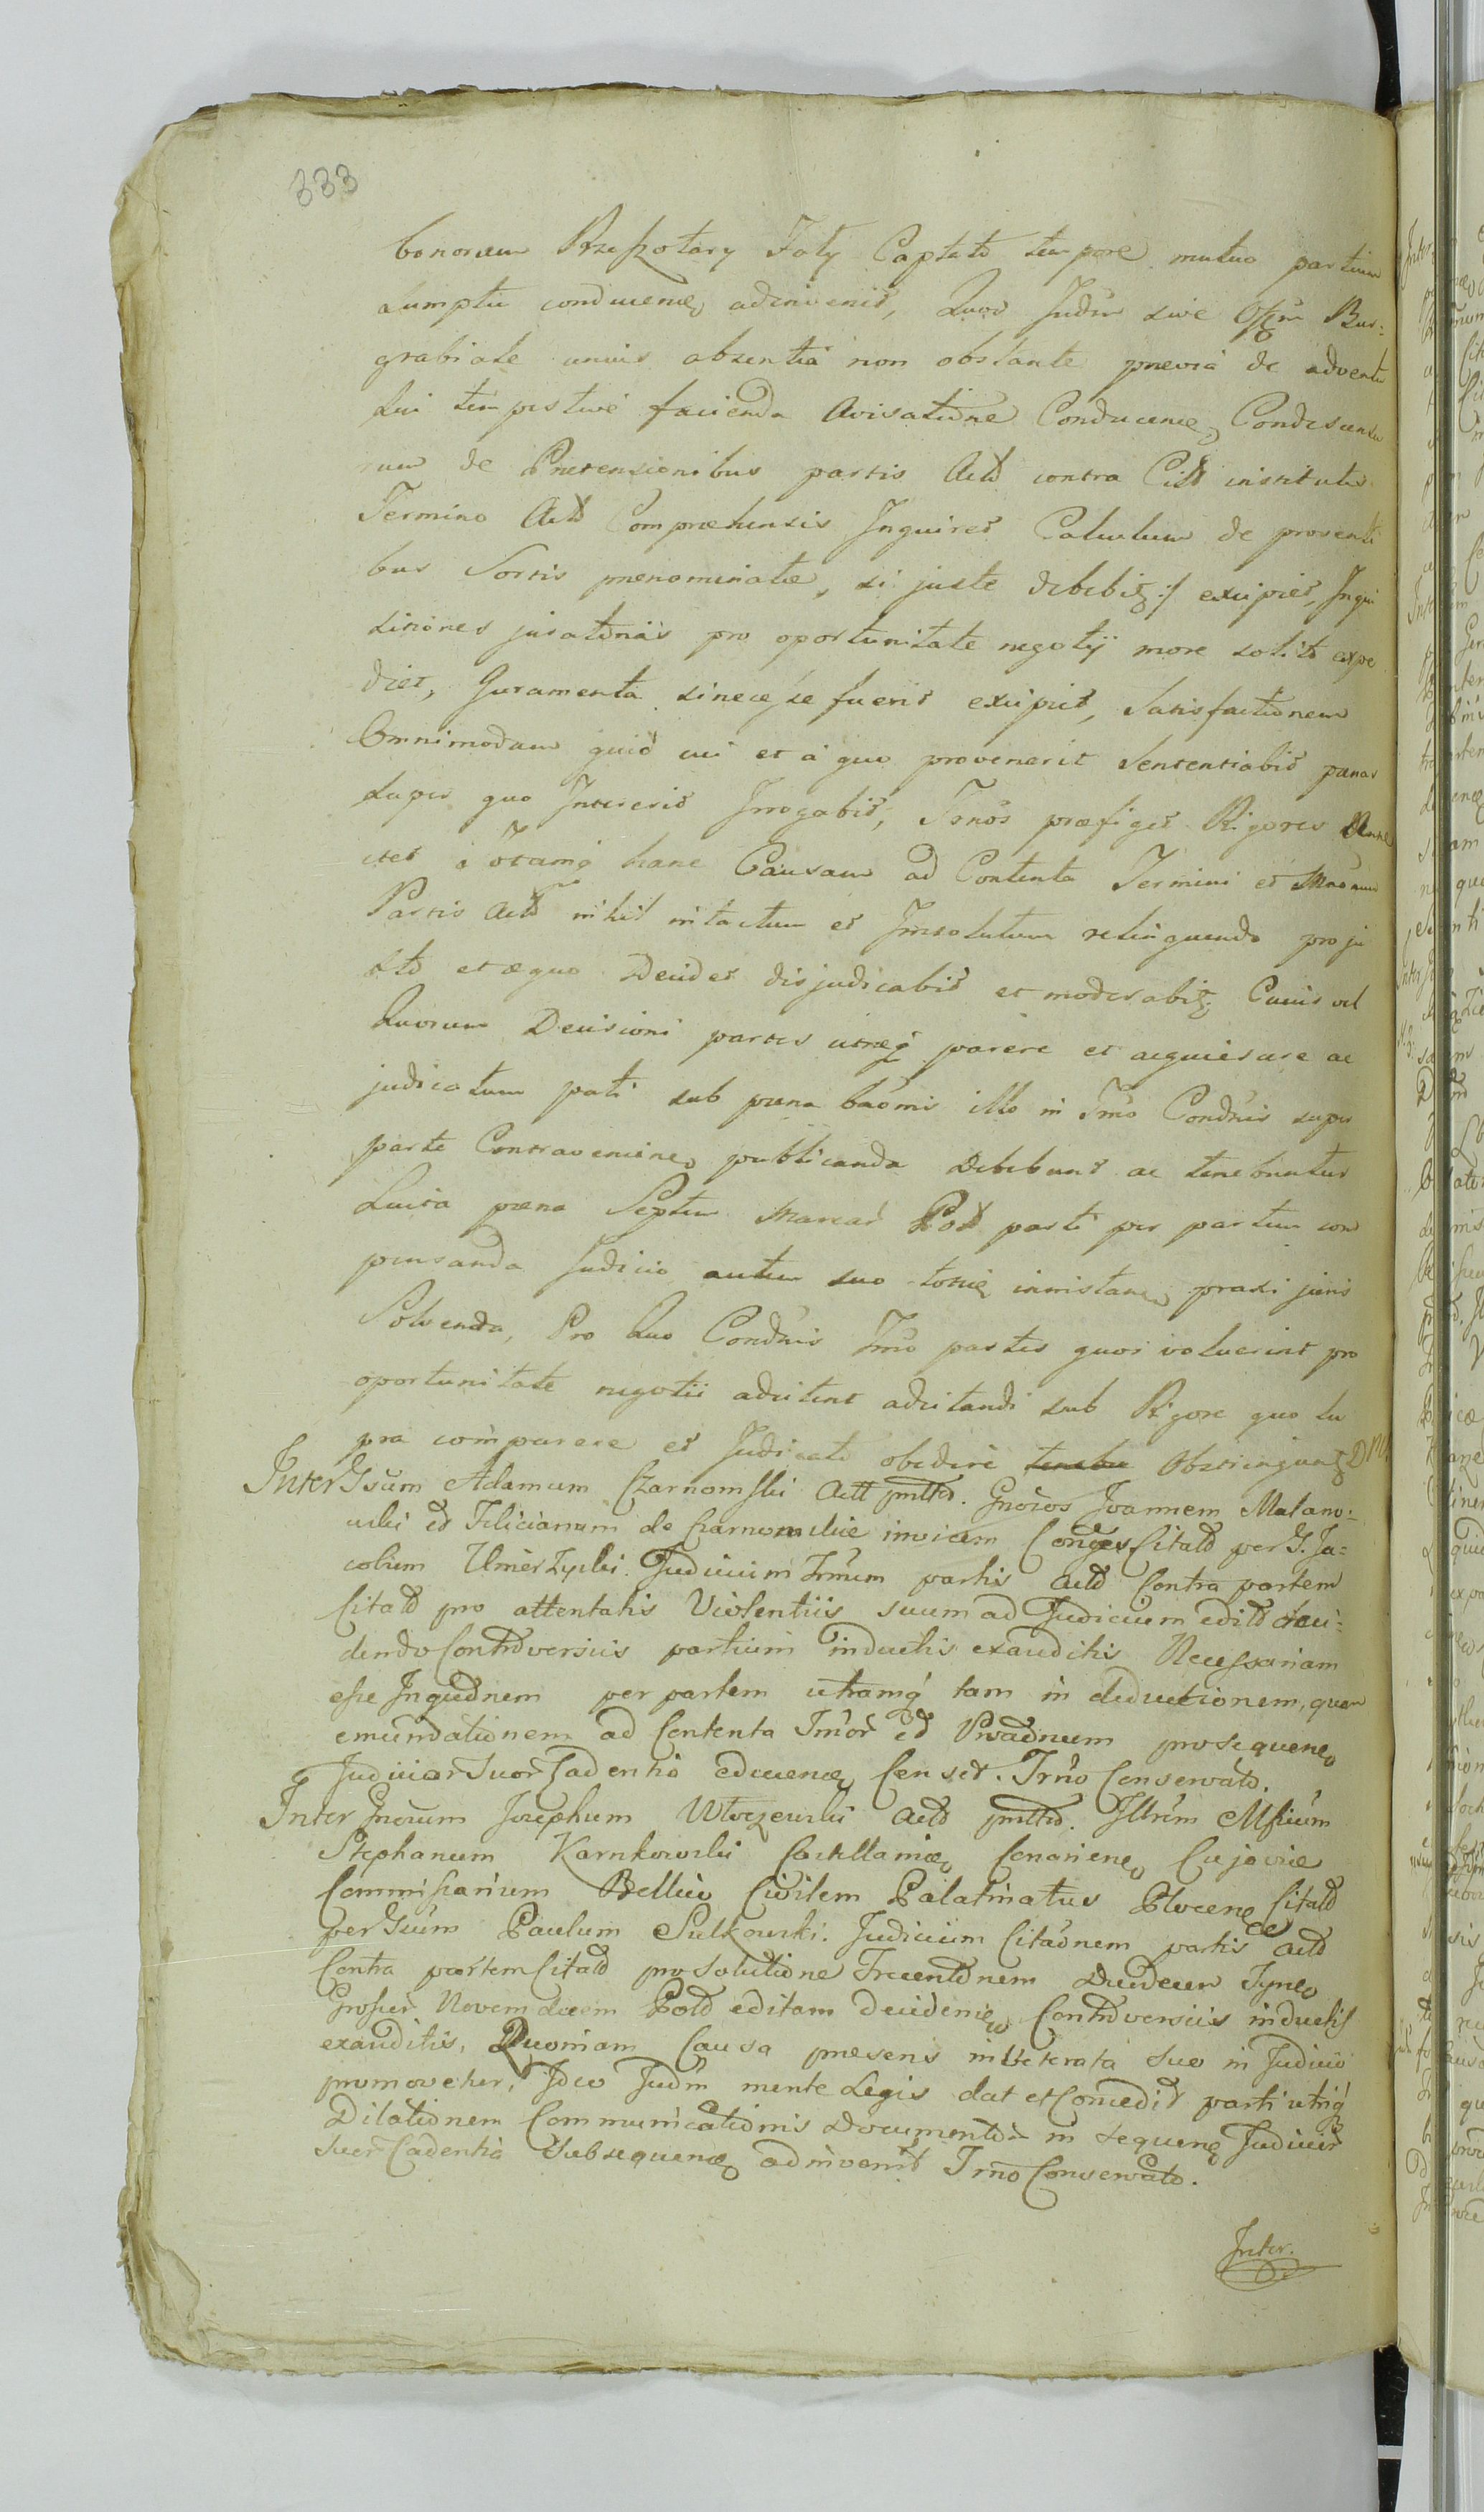 333
bonorum Przeszotary Faty Captato tempore mutuo partium
sumptu conducene adinvenit, Quod Judm sive Offm Bur:
grabiale unius absentia non obstante praevia de adventu
sui tempestive facienda avisatione Conducene, Condescensu
rum de Pretensionibus partis Actt contra Citt institutis
Termino Actt Comprehensis Inquiret Calculum de proventi
bus Sortis praenominatae, si juste debebit excipiet, Inqui
sitiones juratorias pro oportunitate negotij more solito expe
diet, Juramenta si necesse fuerit excipiet, Satisfactionem
Omnimodam quid cui et a quo provenerit Sententiabit paenas
super quo Intererit Irrogabit, Trnos praefiget Rigores
ciet totamq hanc Causam ad Contenta Termini et
Partis Actt nihil intactum et Insolutum relinquendo pro ju
sto et aequo Decidet disjudicabit et moderabit, Cuius vel
Quorum Decisioni partes utraeq parere et acquiescere ac
judicatum pati sub paena banomis illo in Trno Condnis super
parte Contraveniene publicanda Debebunt ac tenebuntur
Luita paena Septem Marcar Polt parti per partem com
pensanda Judicio autem suo toties inmistane praxi juris
Solvenda, Pro Quo Condnis Trno partes quos voluerint pro
oportunitate negotii adcitent adcitandi sub Rigore quo su
pra comparere et Judicato obedire tenebu Obstringunt DM.
Inter Gsum Adamum Czarnomski Actt pmttd. Gnosos Joannem Malano:
wski et Felicianum de Czarnomskie invicem Conges Citatt per G. Ja:
cobum Umerzycki. Judicium Trnum partis actt Contra partem
Citatt pro attentatis Violentiis suum ad Judicium editt deci:
dendo Contdversiis partium inductis exauditis Necessariam
esse Inqudnem per partem utramq tam in deductionem, quam
emundationem ad Contenta Trnor et Proadnum prosequene
Judicior Suor Cadentia educene Censet. Trno Conservato.
Inter Gnosum Josephum Wtoczewski actt pmttd. Illrem Mfium
Stephanum Karnkowski Castellanie Conariene Cujavie
Commissarium Bellico Civilem Palatinatus Plocene Citatt
per Gsum Paulum Sulkowski. Judicium Citadnem partis Actt
Contra partem Citatt pro Solutione Trecentdnem Duodecem Tyne
Grosser Novem decem Polt editam decidene Contdversiis inductis
exauditis, Quoniam Causa praesens in Veterata Suo in Judicio
promovetur, Ideo Judm mente Legis dat et Concedit parti utriq
Dilationem Communicationis Documentor in sequene Judicior
Suor Cadentia Subsequene adinvenit Trno Conservato.
Inter.